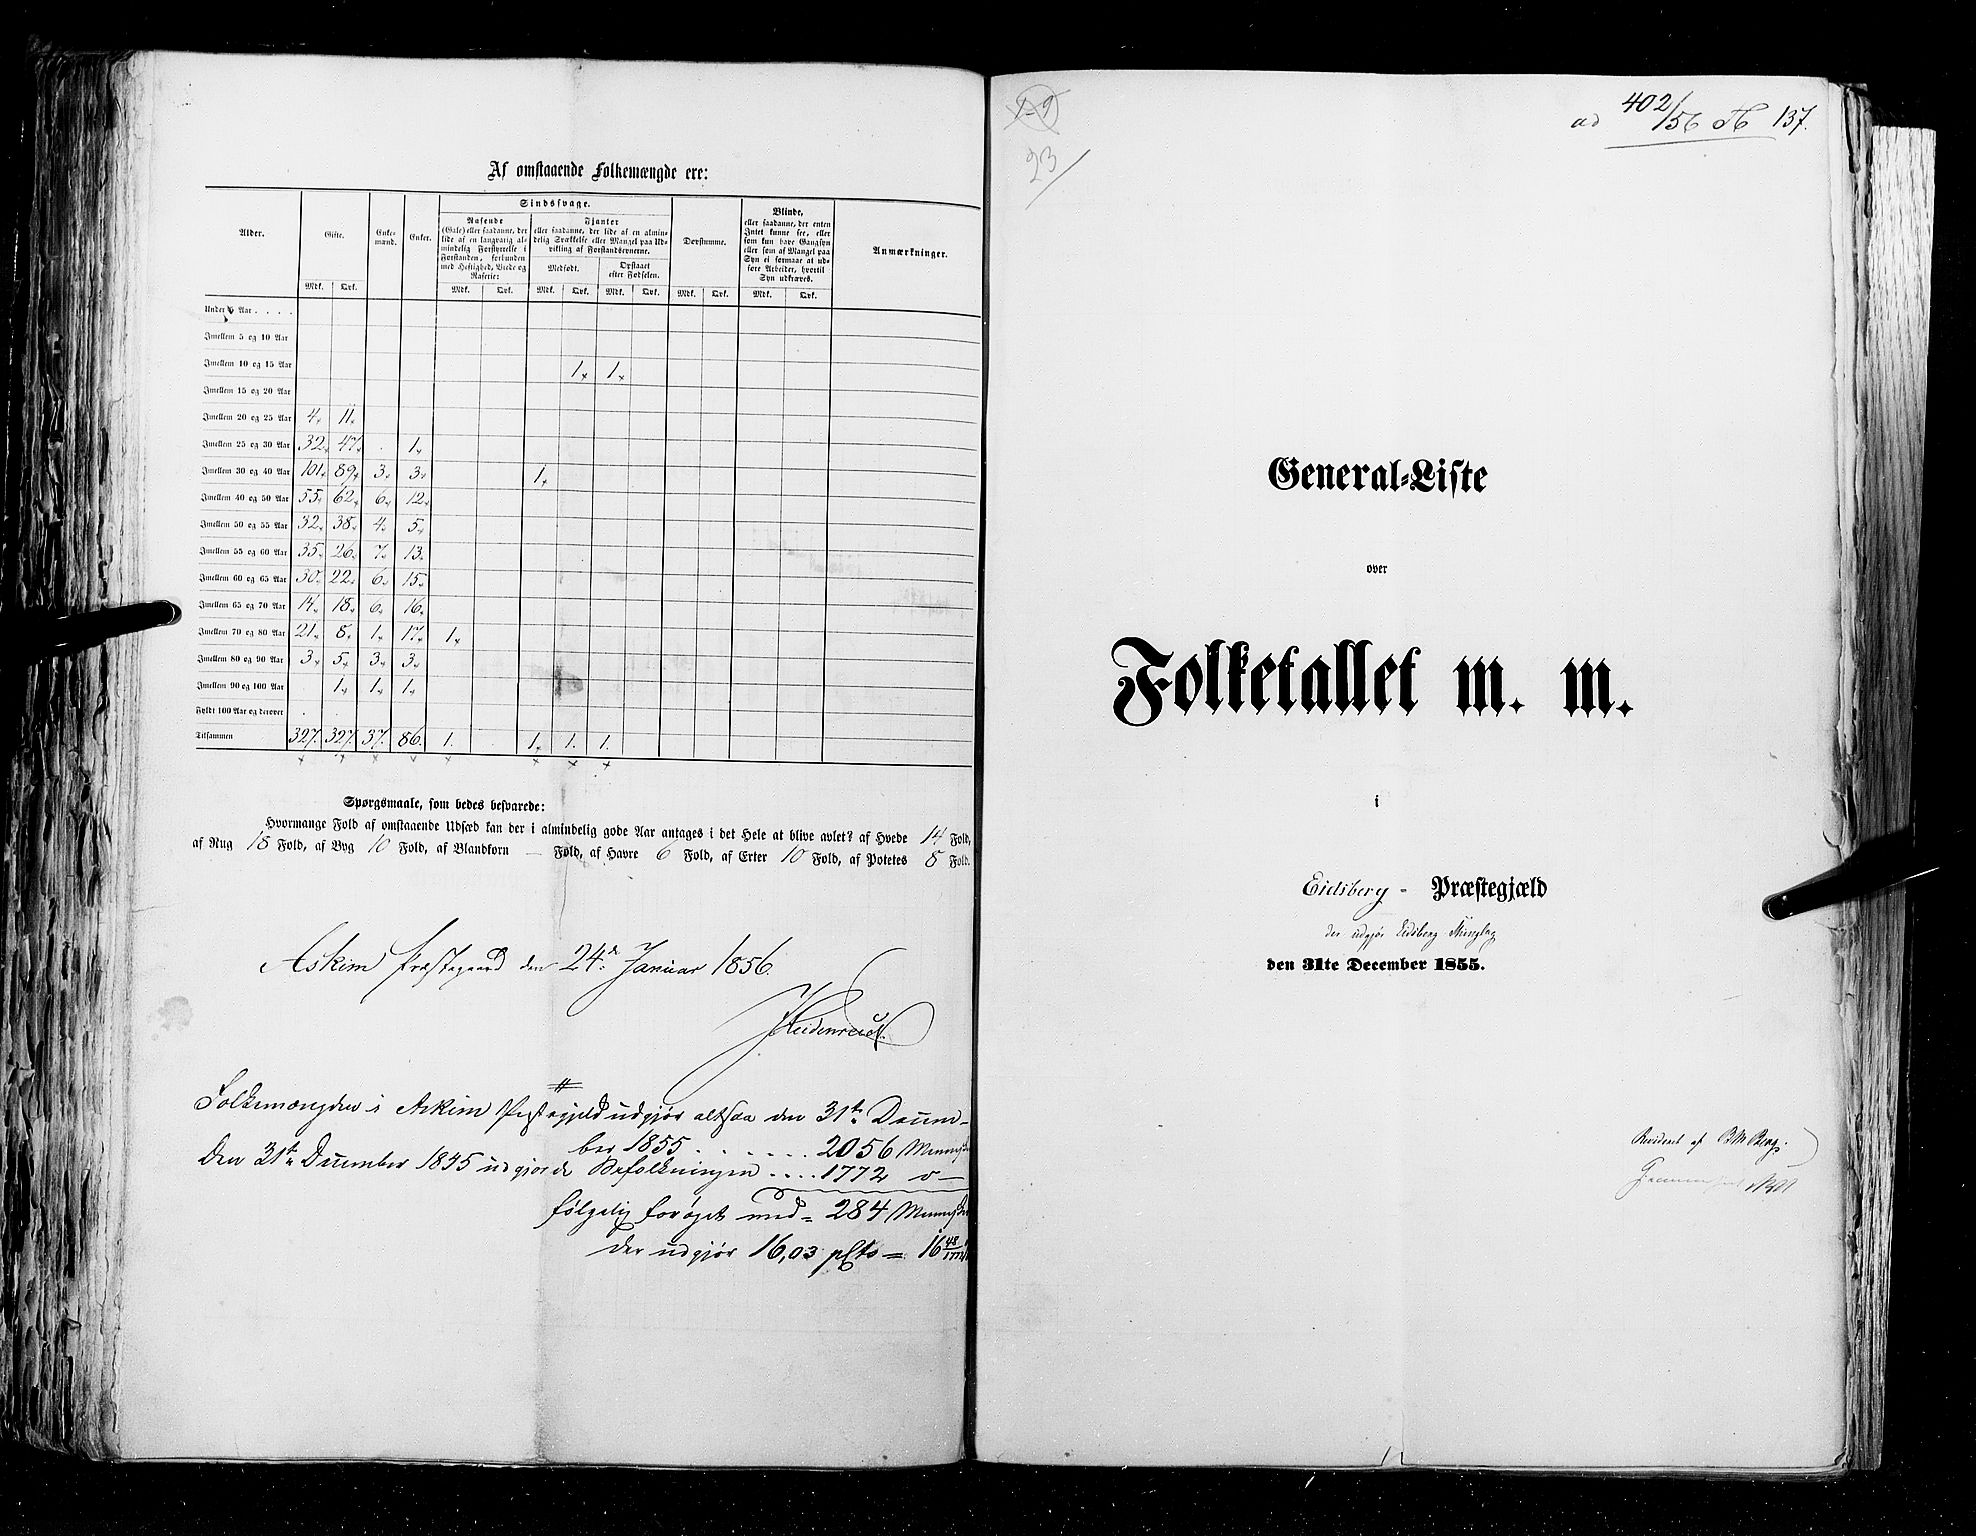 Af omstaaende Folkemængde ere:
Alder. Gifte. Enkemænd. Enker. Sindssvage. Døvstumme. Blinde, Anmærkninger.
Rasende (Gale) eller saadanne, der lide af en langvarig almindelig Forstyrrelse i Forstanden, forbunden med Heftighed, Vrede og Raserie:
Fjanter eller saadanne, der lide af en almindelig Svækkelse eller Mangel paa Udvikling af Forstandsevnerne.
Medfødt. Opstaaet efter Fødselen.
eller saadanne, der enten Intet kunne see, eller som kun have Gangsyn eller som af Mangel paa Syn ei formaae at udføre Arbeider, hvortil Syn udkræves.
Mdk. Qvk. Mdk. Qvk. Mdk. Qvk. Mdk. Qvk. Mdk. Qvk. Mdk. Qvk.
Under 5 Aar . . . .
Imellem 5 og 10 Aar
Imellem 10 og 15 Aar 1 1
Imellem 15 og 20 Aar
Imellem 20 og 25 Aar 4 11
Imellem 25 og 30 Aar 32 47 . 1
Imellem 30 og 40 Aar 101 89 3 3 1
Imellem 40 og 50 Aar 55 62 6 12
Imellem 50 og 55 Aar 32 38 4 5
Imellem 55 og 60 Aar 35 26 7 13
Imellem 60 og 65 Aar 30 22 6 15
Imellem 65 og 70 Aar 14 18 6 16
Imellem 70 og 80 Aar 21 8 1 17 1
Imellem 80 og 90 Aar 3 5 3 3
Imellem 90 og 100 Aar . 1 1 1
Fyldt 100 Aar og derover
Tilsammen 327. 327. 37. 86. 1. 1. 1. 1.
Spørgsmaale, som bedes besvarede:
Hvormange Fold af omstaaende Udsæd kan der i almindelig gode Aar antages i det Hele at blive avlet? af Hvede 14 Fold,
af Rug 18 Fold, af Byg 10 Fold, af Blandkorn — Fold, af Havre 6 Fold, af Erter 10 Fold, af Potetes 8 Fold.
Askim Præstegaard den 24de Januar 1856.
Heidenreich
Folkemængden i Askim Præstegjeld udgjør altsaa den 31te Decem-
ber 1855 . . . . . . 2056 Mennesker
Den 31te December 1845 udgjorde Befolkningen . . . . 1772 o —
følgelig forøget med = 284 Mennesker
der udgjør 16,03 pCto = 16 48/1772
1-9
23
ad 402/56 137.
General-Liste
over
Folketallet m. m.
i
Eidsberg - Præstegjæld
der udgjør Eidsberg Thinglag
den 31te December 1855.
Revideret af B M Berg.